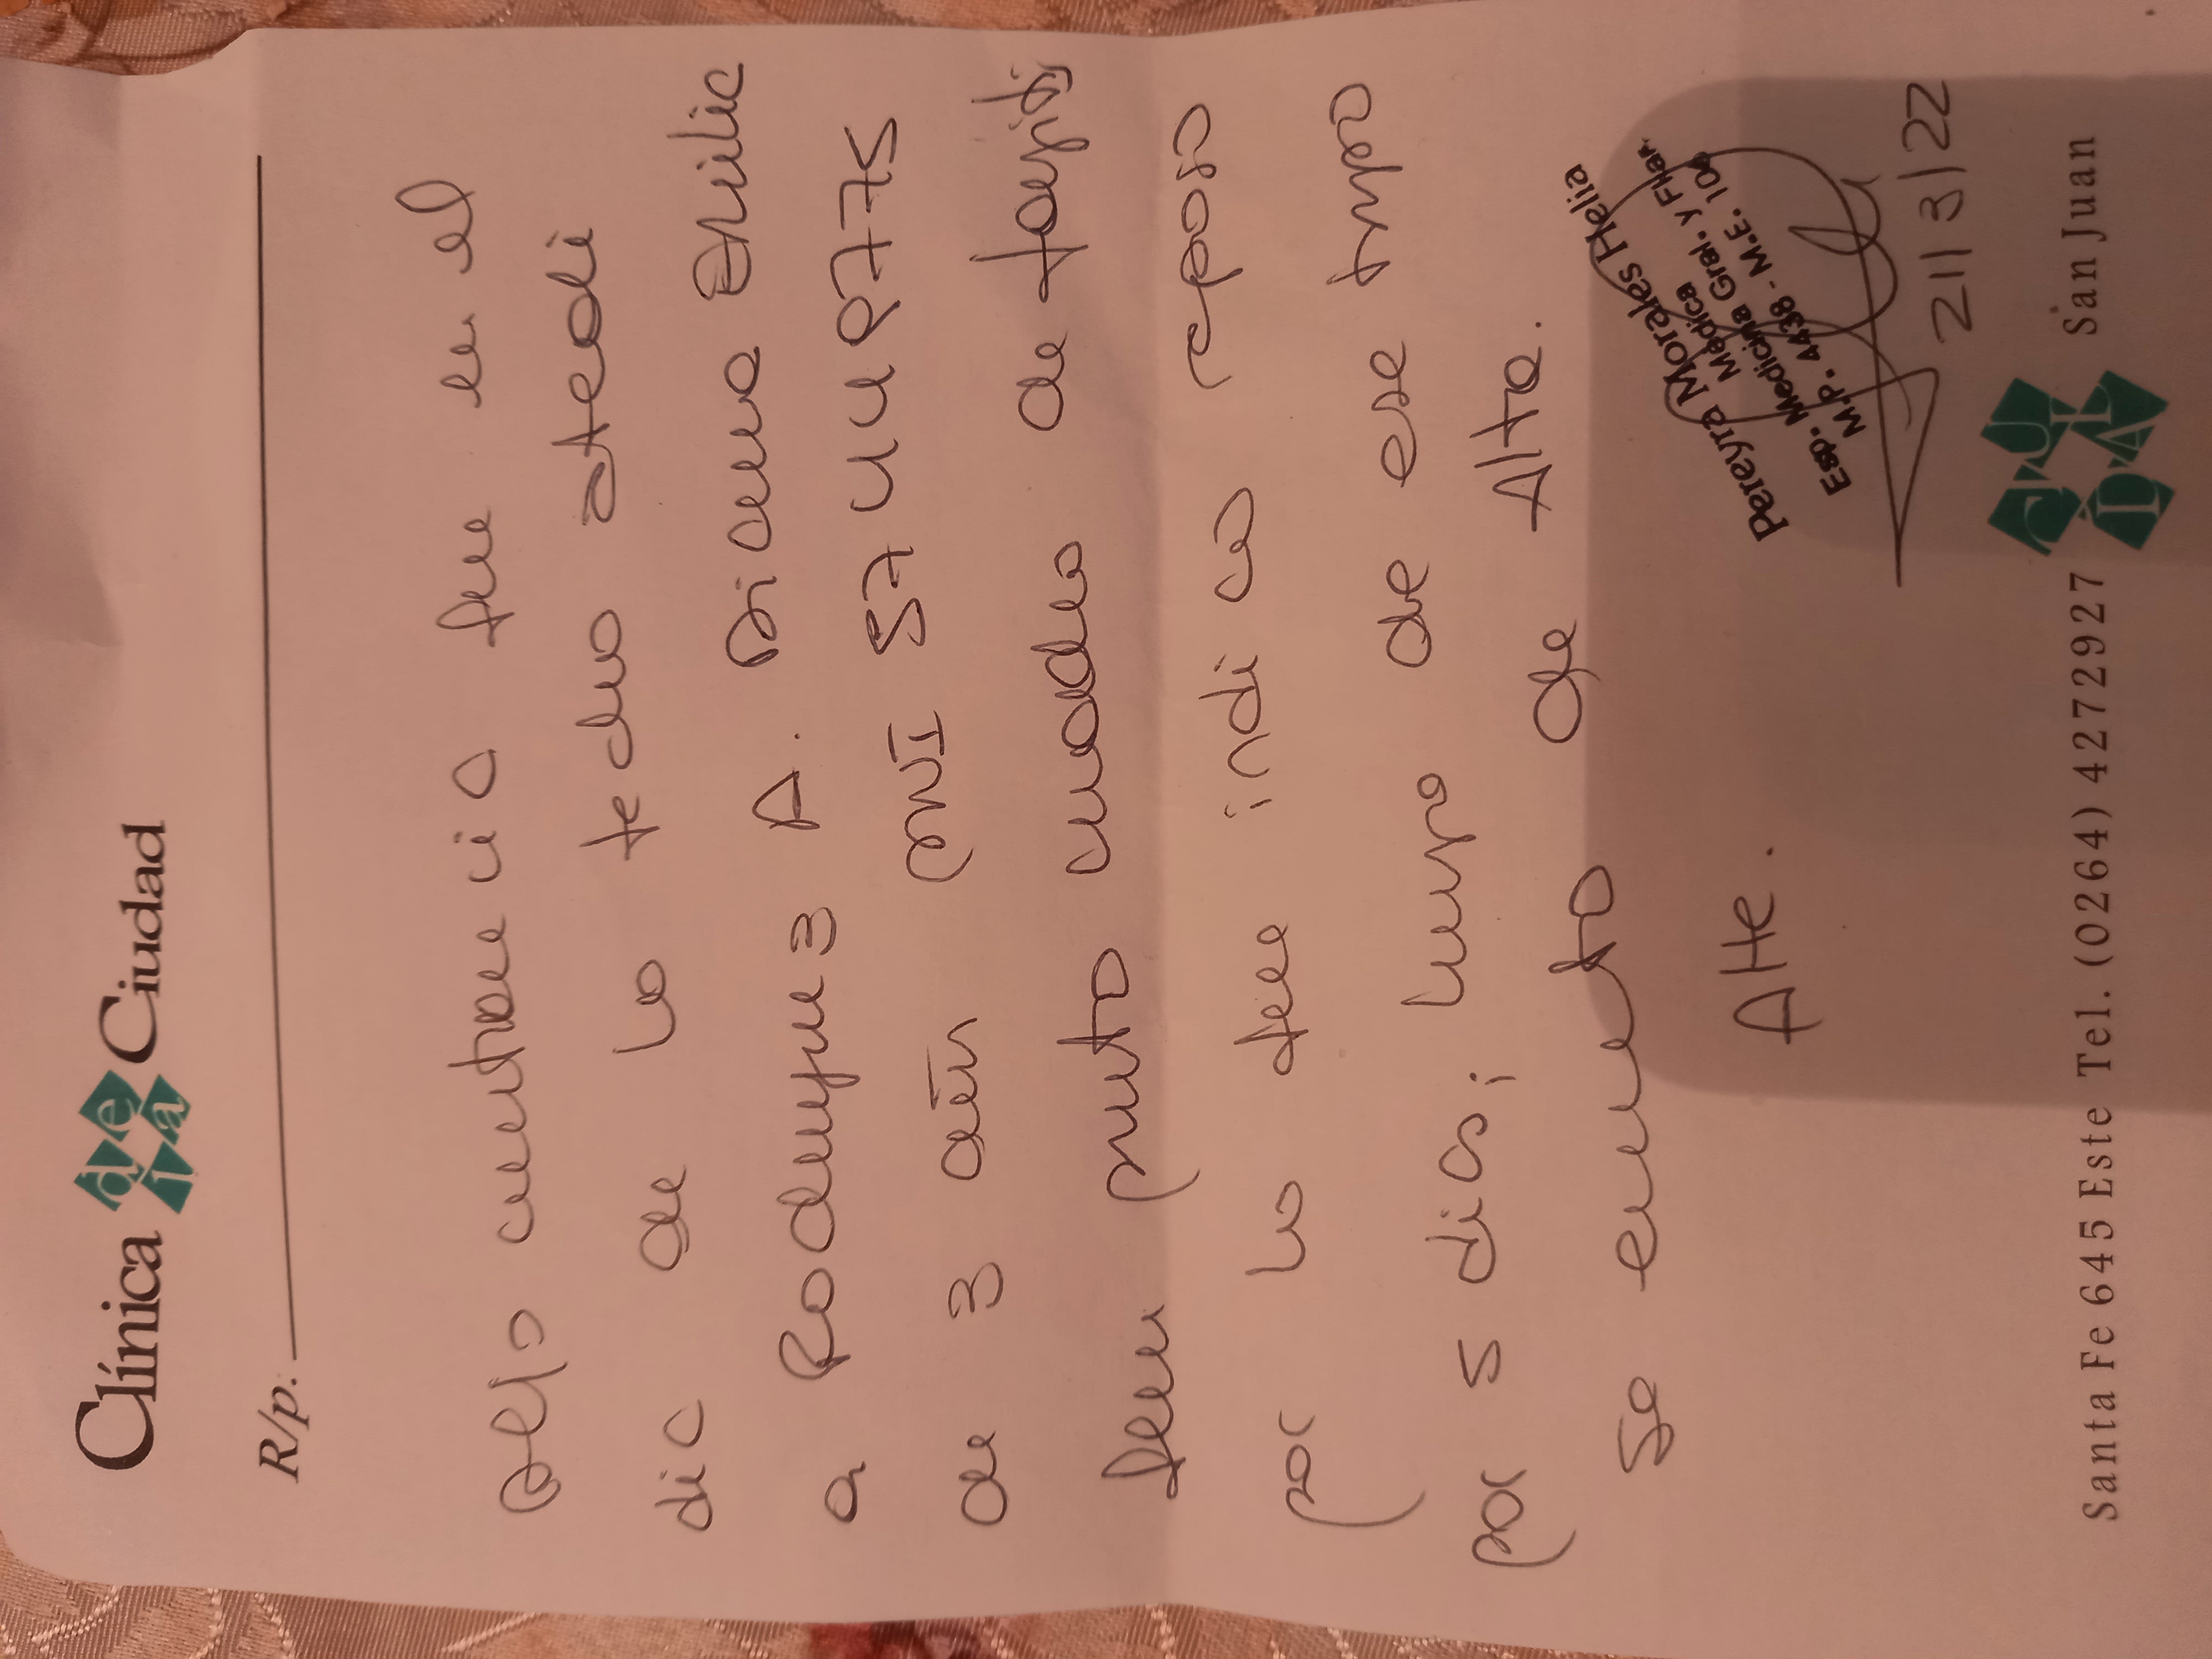 Clínica de la Ciudad
R/p.
Dejo constancia que en el
dia de la fecha atendi
a Rodriguez A. Bianca Emilia
de 3 años DNI 57448775
quien presento cuadro de faringitis
por lo que indico reposo
por 5 dias; luego de ese tiempo
se encuentra de Alta.
Atte.
Pereyra Morales Helia
Médica
Esp. Medicina Gral. y Fliar.
M.P. 4438 - M.E. 10
21/3/22
CIUDAD
Santa Fe 645 Este Tel. (0264) 4272927 San Juan